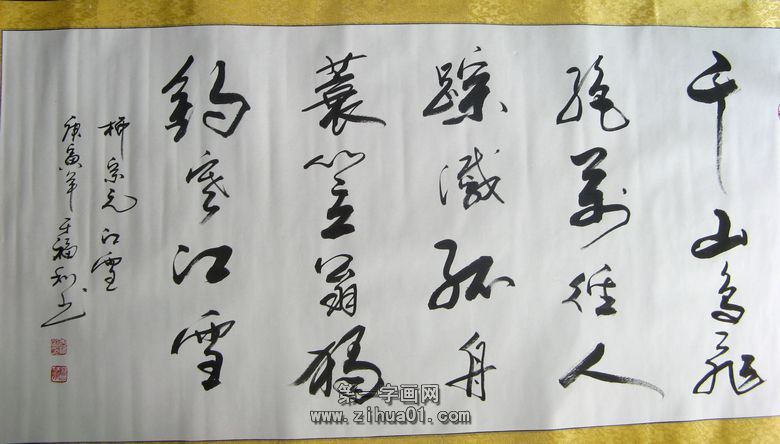 千山鸟飛
绝萬径人
踪滅孤舟
蓑笠翁獨
釣寒江雪
柳宗元江雪
庚寅年 福利书
第一字画网
www.zihua01.com